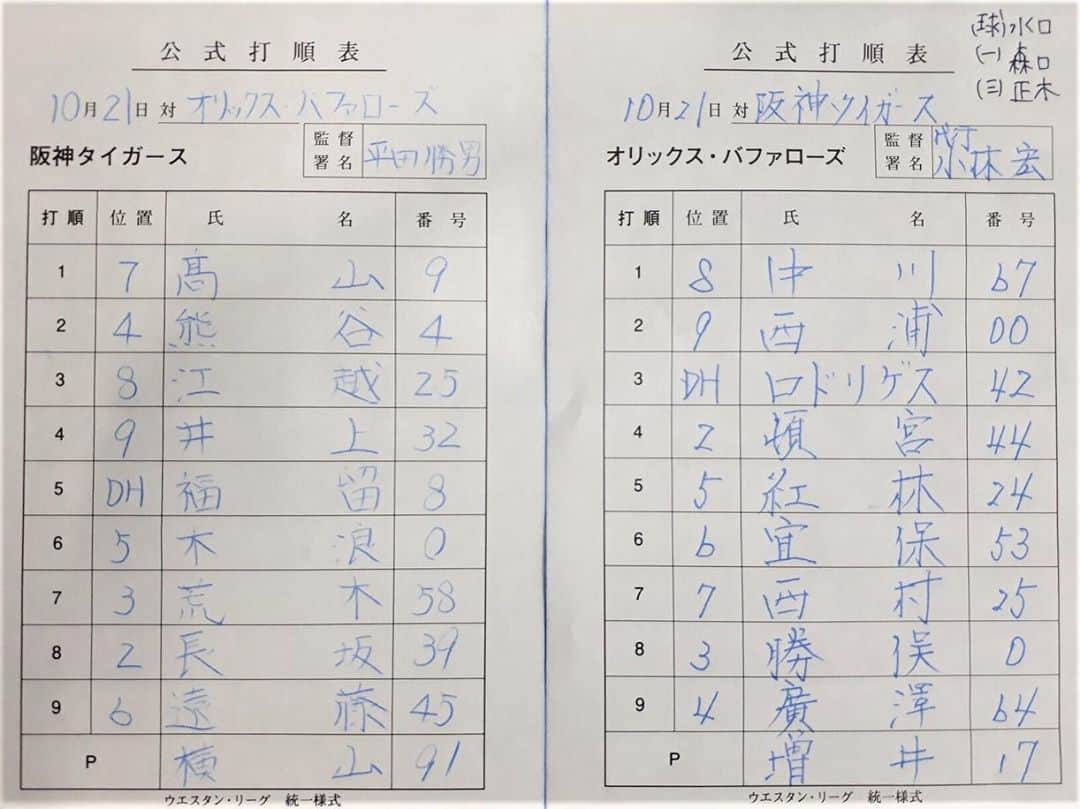 公式打順表
10月21日 対 オリックス・バファローズ
阪神タイガース 監督署名 平田勝男
打順 位置 氏名 番号
1 7 髙山 9
2 4 熊谷 4
3 8 江越 25
4 9 井上 32
5 DH 福留 8
6 5 木浪 0
7 3 荒木 58
8 2 長坂 39
9 6 遠藤 45
P 横山 91
ウエスタン・リーグ 統一様式
(球)水口
(一)森口
(三)正木
公式打順表
10月21日 対 阪神タイガース
オリックス・バファローズ 監督署名 代行 小林宏
打順 位置 氏名 番号
1 8 中川 67
2 9 西浦 00
3 DH ロドリゲス 42
4 2 頓宮 44
5 5 紅林 24
6 6 宜保 53
7 7 西村 25
8 3 勝俣 0
9 4 廣澤 64
P 増井 17
ウエスタン・リーグ 統一様式